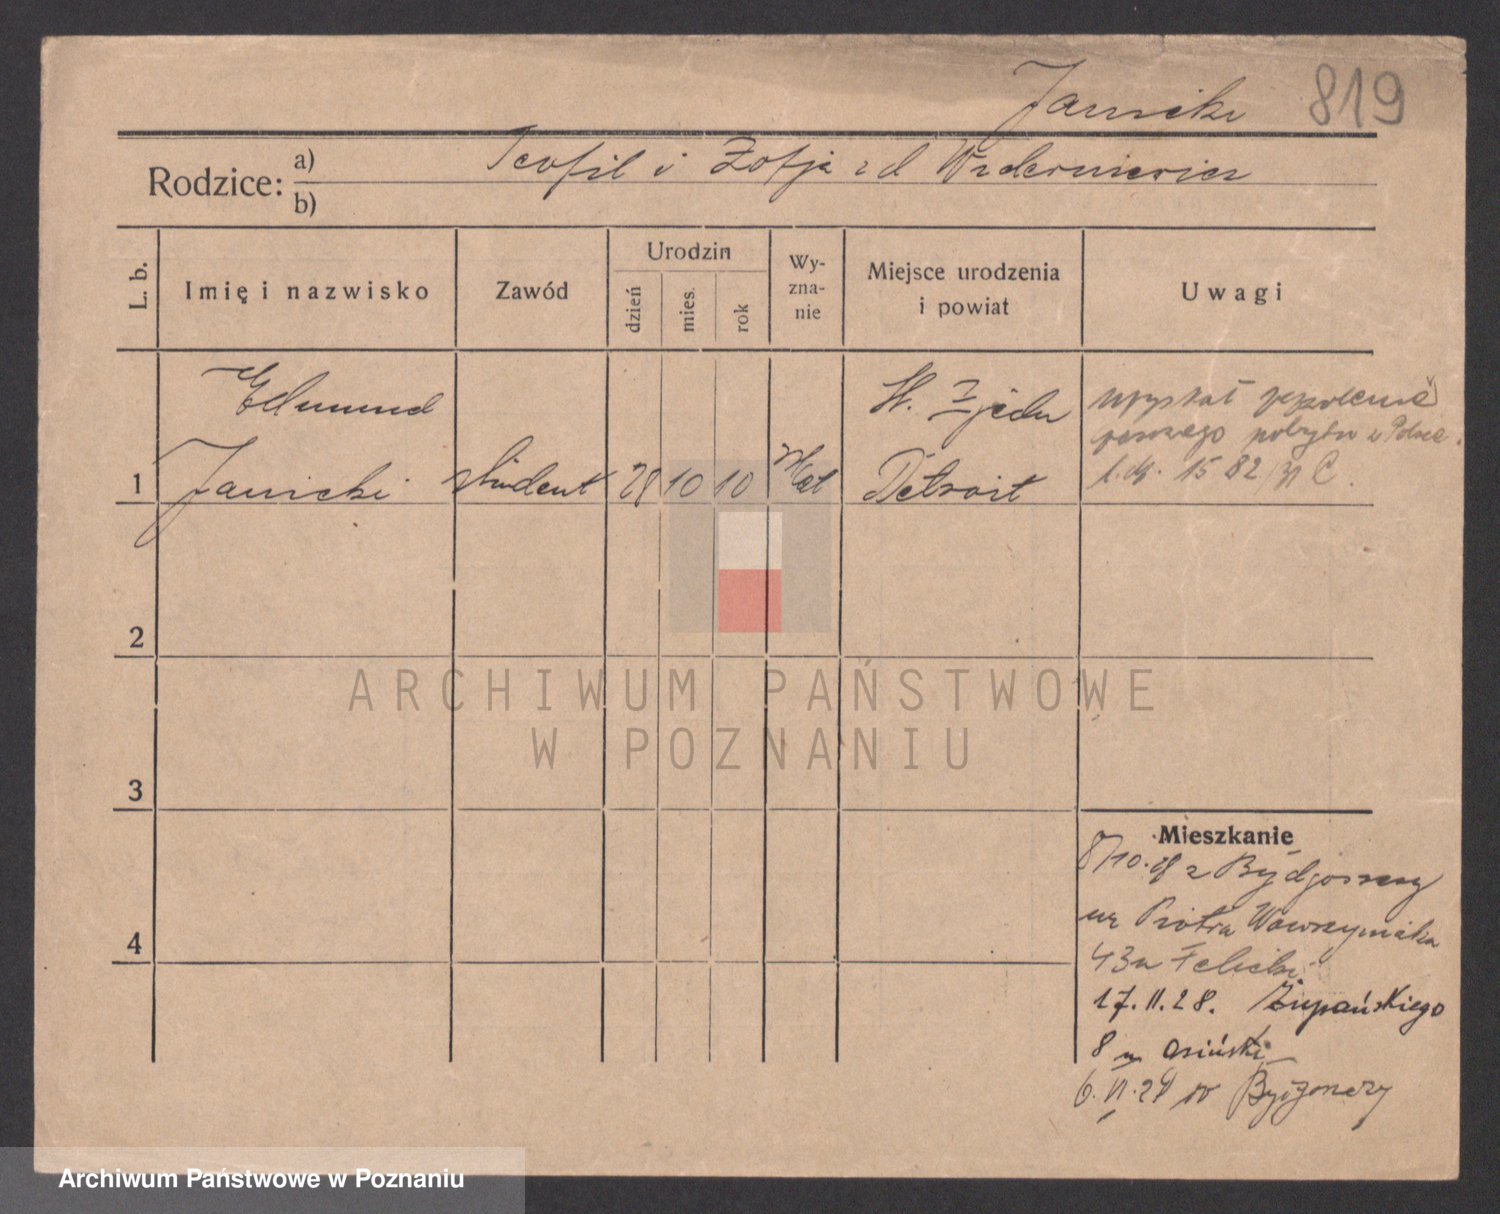 Janicki 819
Rodzice: a) Teofil i Zofja z d
b)
L. b. Imię i nazwisko Zawód Urodzin dzień mies. rok Wy-zna-nie Miejsce urodzenia i powiat Uwagi
Edmund St. Zjedn
1 Janicki student 28 10 10 Kat Detroit
uzyskał zezwolenie
pobytu w Polsce.
l.dz. 1582
2
ARCHIWUM PAŃSTWOWE
W POZNANIU
3
Mieszkanie
8/10. z Bydgoszczy
4
ul Piotra Wawrzyniaka
43
17.11.28. Żupańskiego
8 m Osiński
6.VI.29 do Bydgoszczy
Archiwum Państwowe w Poznaniu